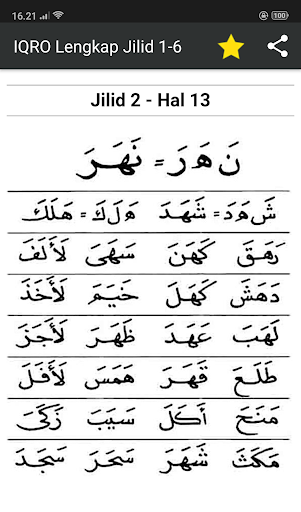 16.21
IQRO Lengkap Jilid 1-6
Jilid 2 - Hal 13
نَ هَرَ = نَهَرَ
شَ هَدَ = شَهَدَ هَ لَكَ = هَلَكَ
رَهَقَ كَهَنَ سَهَىَ لَأَلَفَ
دَهَشَ كَهَلَ خَيَمَ لَأَخَذَ
لَهَبَ عَهَدَ ظَهَرَ لَأَجَزَ
طَلَعَ قَهَرَ هَمَسَ لَأَفَلَ
مَنَحَ أَكَلَ سَيَبَ زَكَىَ
مَكَثَ شَهَرَ سَحَرَ سَجَدَ